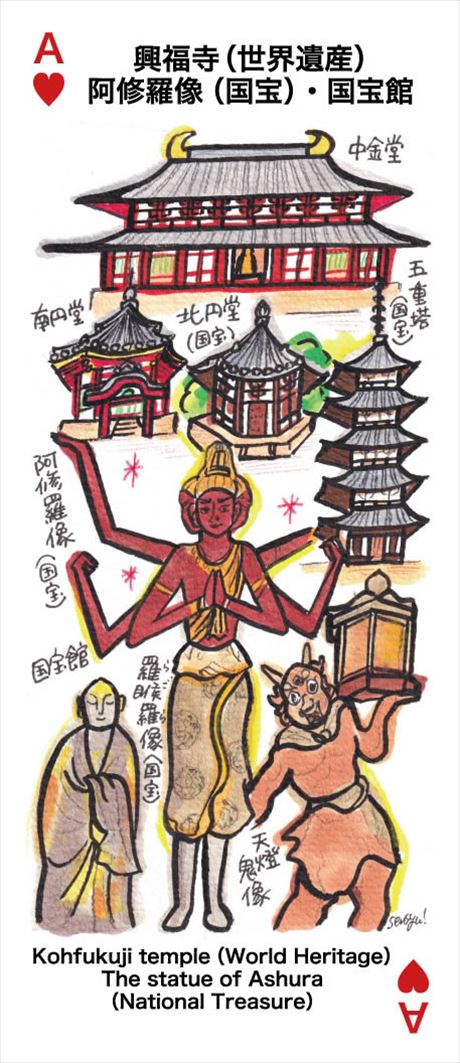 A
興福寺（世界遺産）
阿修羅像（国宝）・国宝館
中金堂
五重塔
（国宝）
南円堂
北円堂
（国宝）
阿修羅像（国宝）
国宝館
羅睺羅像（国宝）
らごら
天燈
鬼像
sensyu!
Kohfukuji temple (World Heritage)
The statue of Ashura
(National Treasure)
A